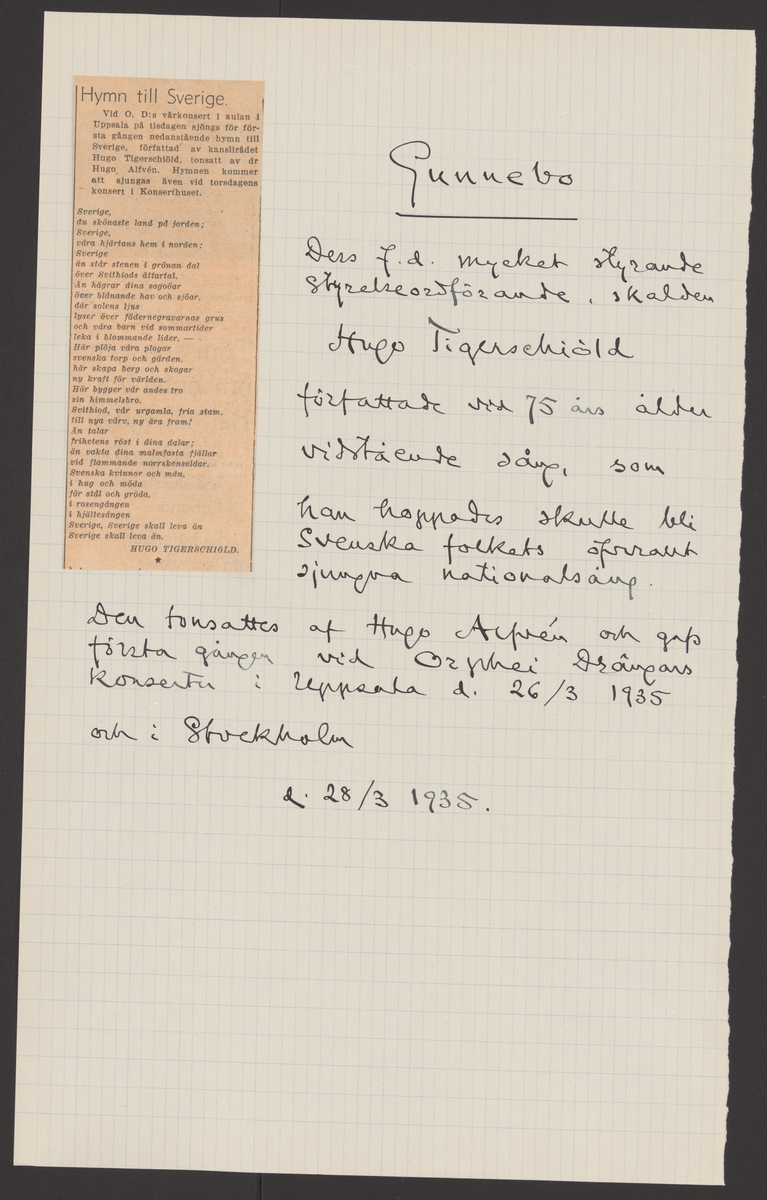 Hymn till Sverige.
Vid O. D:s vårkonsert i aulan i
Uppsala på tisdagen sjöngs för för-
sta gången nedanstående hymn till
Sverige, författad av kanslirådet
Hugo Tigerschiöld, tonsatt av dr
Hugo Alfvén. Hymnen kommer
att sjungas även vid torsdagens
konsert i Konserthuset.
Sverige,
du skönaste land på jorden;
Sverige,
våra hjärtans hem i norden;
Sverige
än står stenen i grönan dal
över Svithiods ättartal.
Än hägrar dina sagoöar
över blånande hav och sjöar,
där solens ljus
lyser över fädernegravarnas grus
och våra barn vid sommartider
leka i blommande lider. —
Här plöja våra plogar
svenska torp och gärden,
här skapa berg och skogar
ny kraft för världen.
Här bygger vår andes tro
sin himmelsbro.
Svithiod, vår urgamla, fria stam,
till nya värv, ny ära fram!
Än talar
frihetens röst i dina dalar;
än vakta dina malmfasta fjällar
vid flammande norrskenseldar.
Svenska kvinnor och män,
i hug och möda
för stål och gröda,
i rosengången
i hjältesången
Sverige, Sverige skall leva än
Sverige skall leva än.
HUGO TIGERSCHIÖLD.
*
Gunnebo
Dess f.d. mycket styrande
styrelseordförande, skalden
Hugo Tigerschiöld
författade vid 75 års ålder
vidstående sång, som
han hoppades skulle bli
Svenska folkets
sjungna nationalsång.
Den tonsattes af Hugo Alfvén och gafs
första gången vid Orphei Drängars
konserter i Uppsala d. 26/3 1935
och i Stockholm
d. 28/3 1935.